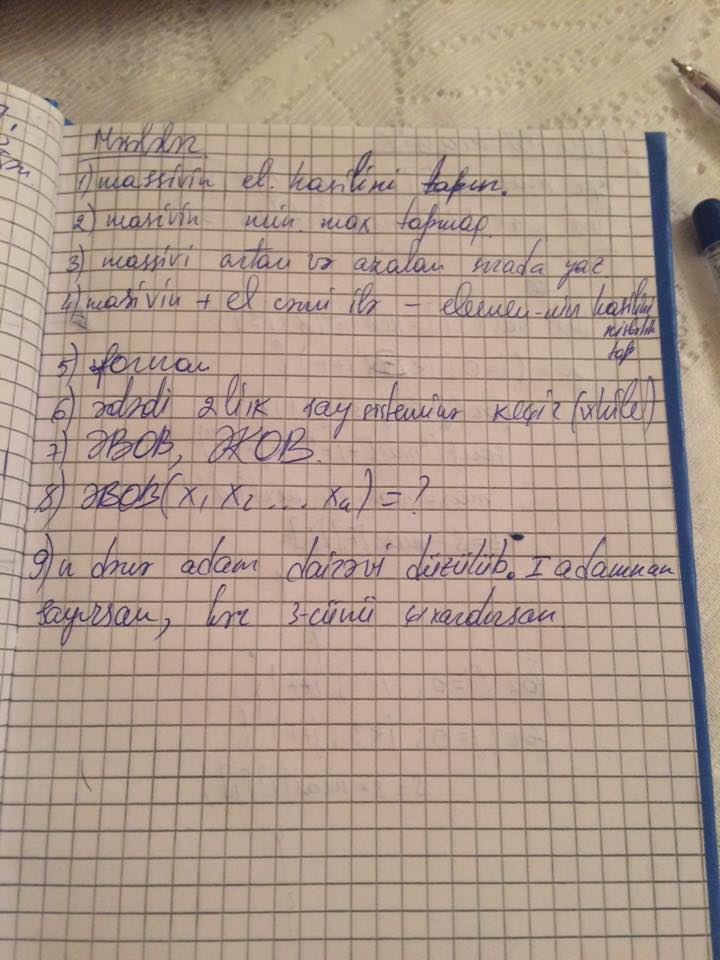 Məsələlər.
1) massivin el. hasilini tapın.
2) masivin min. max tapmaq.
3) massivi artan və azalan sırada yaz
4) masivin + el cəmi ilə – elemen-nin hasilini
nisbətin
tap
5)
6) ədədi 2lik say sisteminə keçir (while)
7) ƏBOB, ƏKOB.
8) ƏBOB(x₁ x₂ ... xₙ) = ?
9) n dənə adam dairəvi düzülüb. I adamnan
sayırsan, hər 3-cünü çıxardırsan